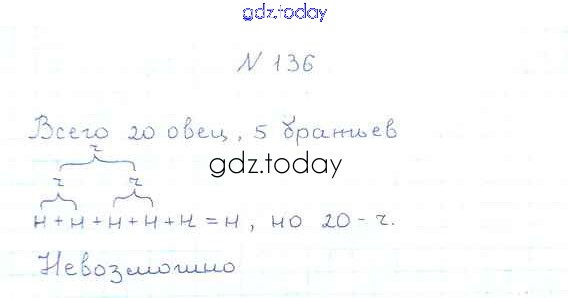 gdz.today
N 136
Всего 20 овец, 5 братьев
ч
gdz.today
ч ч
н + н + н + н + н = н, но 20 - ч.
Невозможно